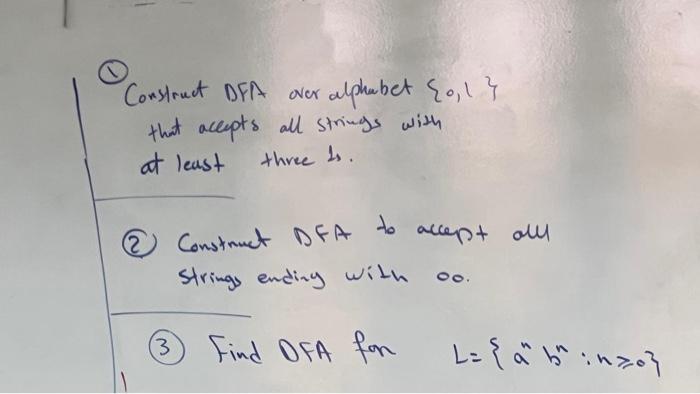 ①
Construct DFA over alphabet {0,1}
that accepts all strings with
at least three 1s.
② Construct DFA to accept all
strings ending with 00.
③ Find DFA for L = { aⁿ bⁿ : n ≥ 0 }